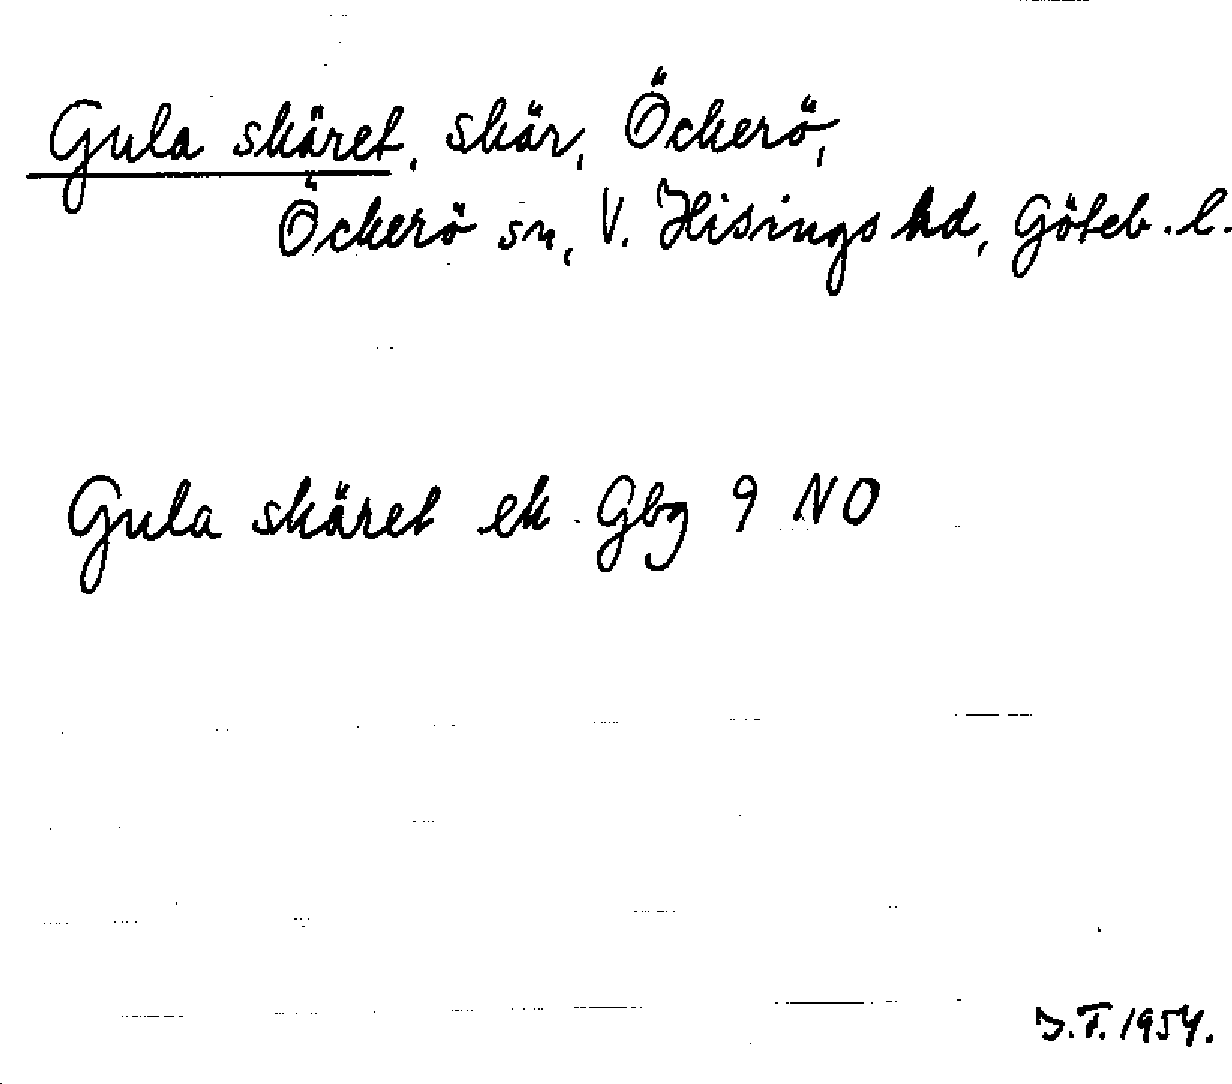 Gula skäret, skär, Öckerö,
Öckerö sn, V. Hisings hd, Göteb. l.
Gula skäret ek Gbg 9 NO
J.T. 1954.